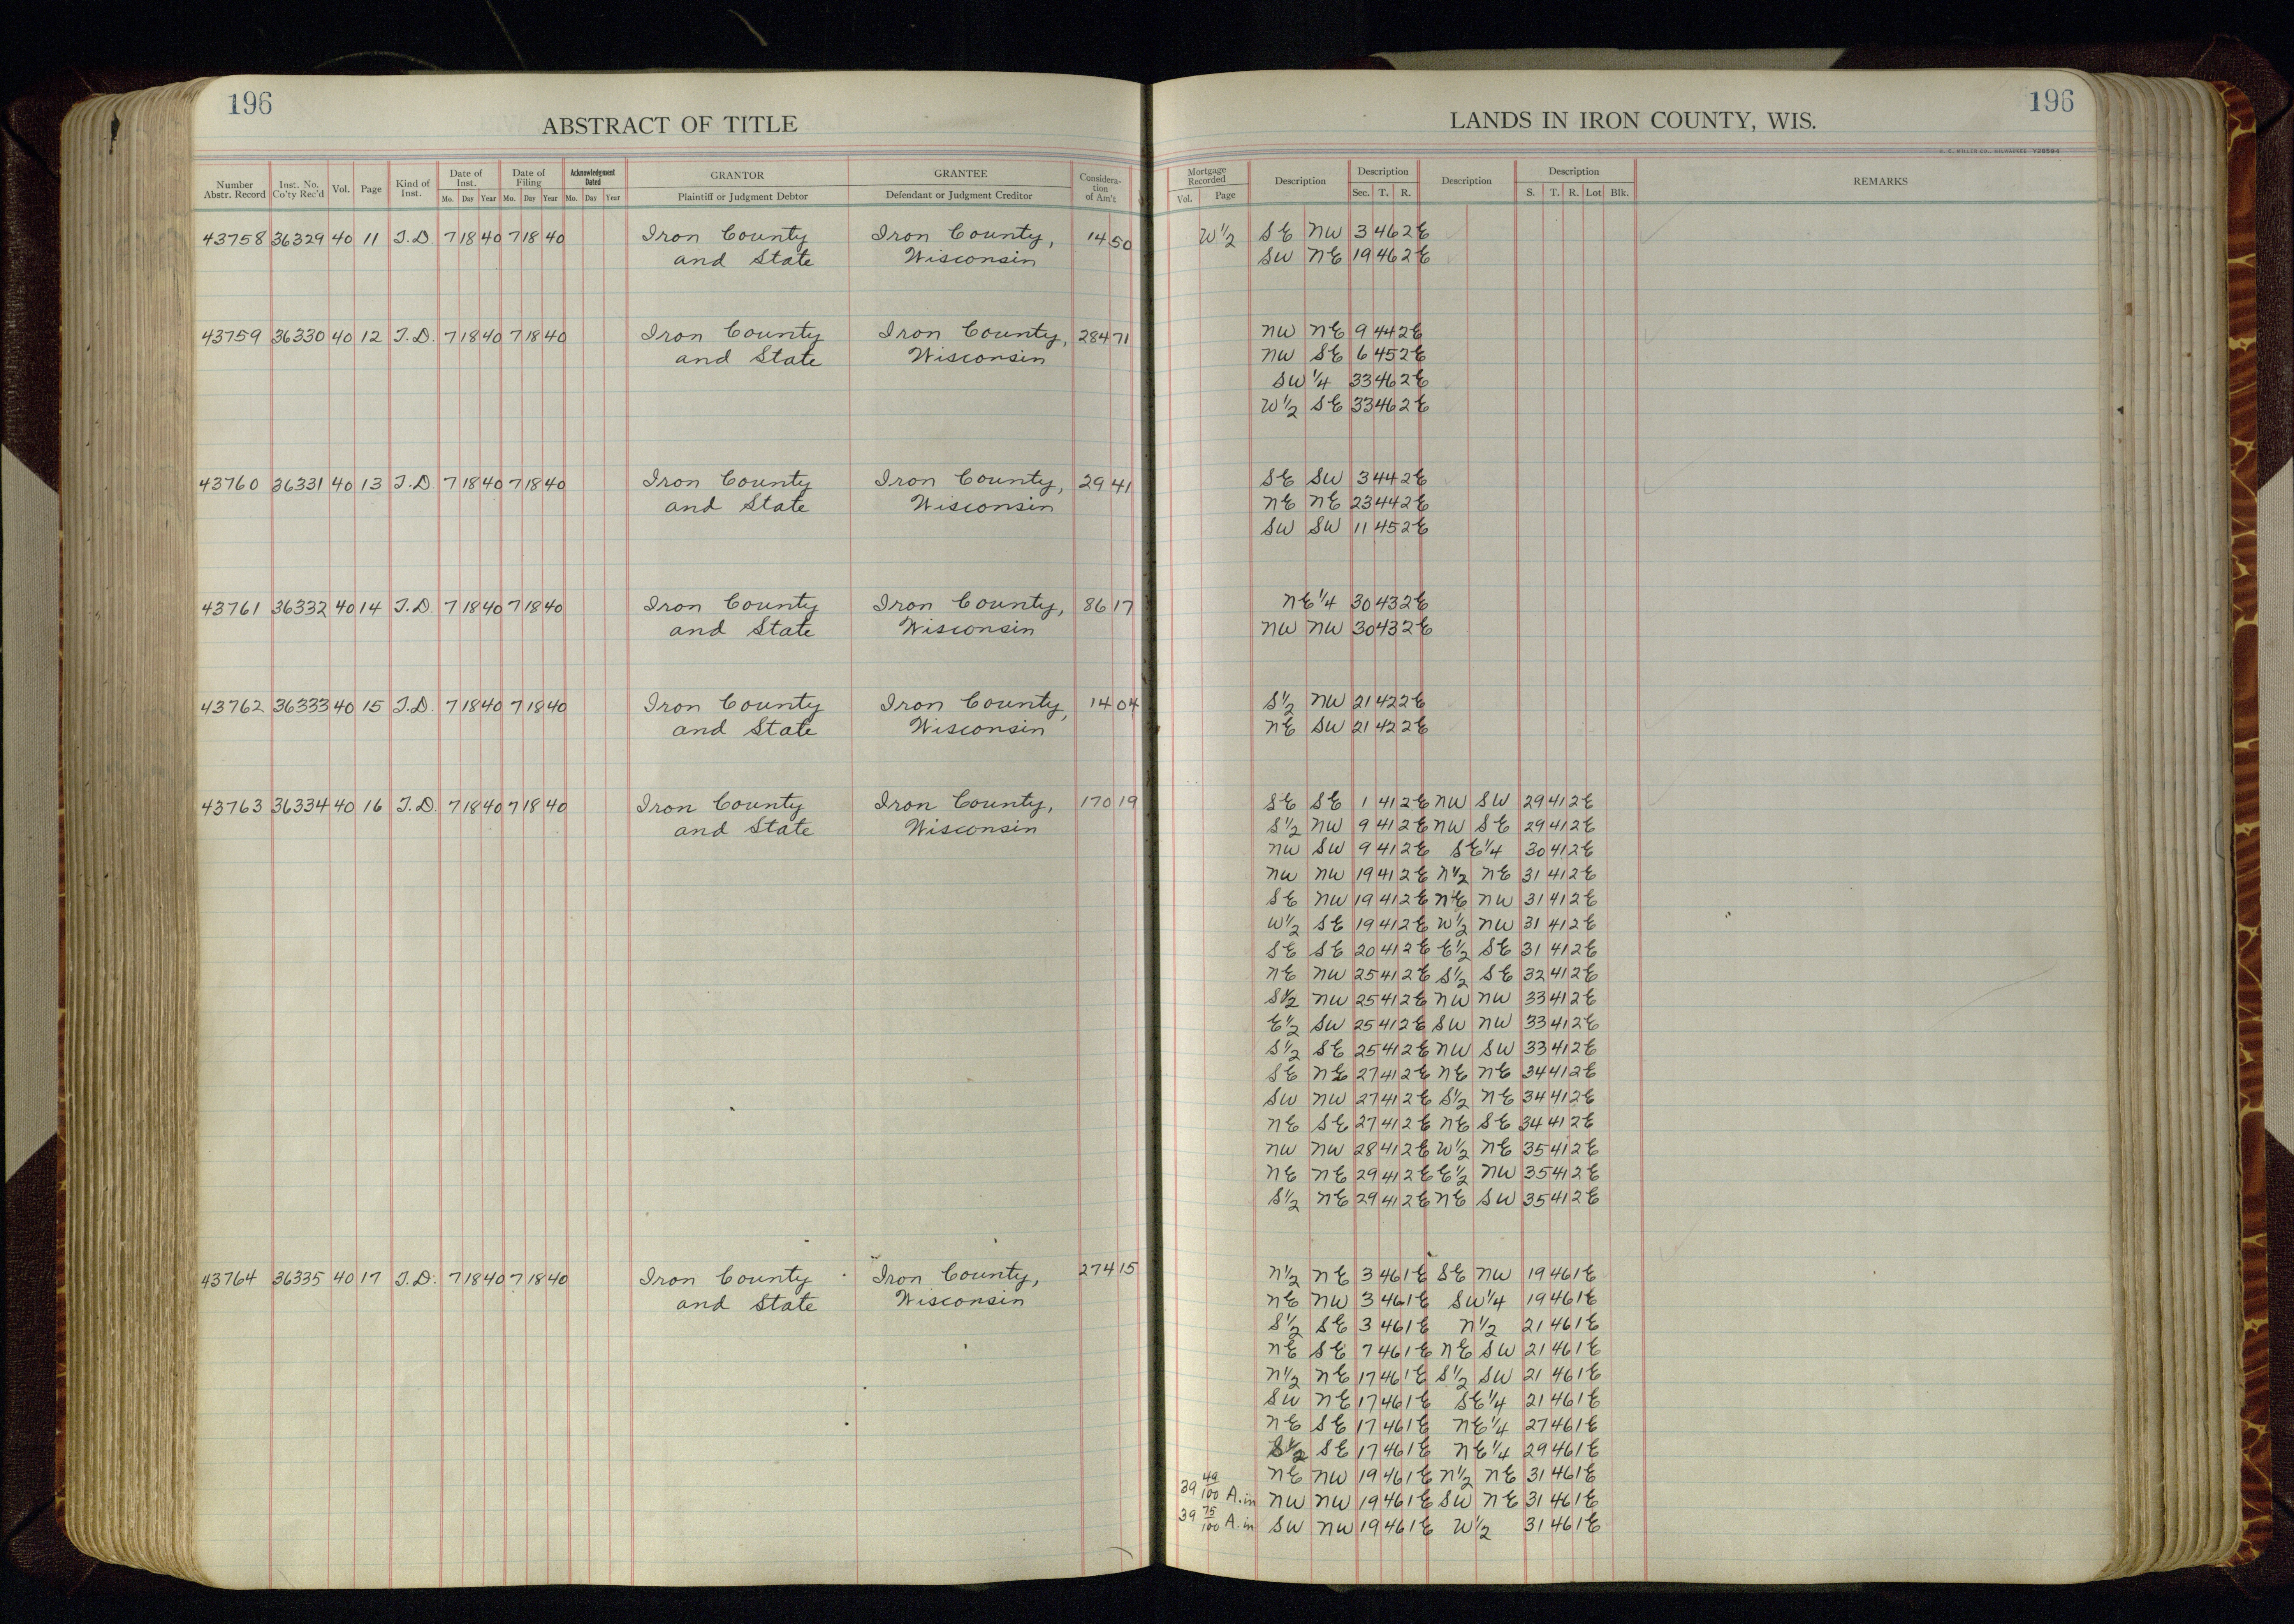 196
ABSTRACT OF TITLE
Number Abstr. Record | Inst. No. Co'ty Rec'd | Vol. | Page | Kind of Inst. | Date of Inst. Mo. Day Year | Date of Filing Mo. Day Year | Acknowledgment Dated Mo. Day Year | GRANTOR Plaintiff or Judgment Debtor | GRANTEE Defendant or Judgment Creditor | Considera-tion of Am't
43758 36329 40 11 T.D. 7 18 40 7 18 40 Iron County Iron County, 14 50
and State Wisconsin
43759 36330 40 12 T.D. 7 18 40 7 18 40 Iron County Iron County, 284 71
and State Wisconsin
43760 36331 40 13 T.D. 7 18 40 7 18 40 Iron County Iron County, 29 41
and State Wisconsin
43761 36332 40 14 T.D. 7 18 40 7 18 40 Iron County Iron County, 86 17
and State Wisconsin
43762 36333 40 15 T.D. 7 18 40 7 18 40 Iron County Iron County, 14 04
and State Wisconsin
43763 36334 40 16 T.D. 7 18 40 7 18 40 Iron County Iron County, 170 19
and State Wisconsin
43764 36335 40 17 T.D. 7 18 40 7 18 40 Iron County Iron County, 274 15
and State Wisconsin
196
LANDS IN IRON COUNTY, WIS.
H. C. MILLER CO., MILWAUKEE
Mortgage Recorded Vol. Page | Description | Description Sec. T. R. | Description | Description S. T. R. Lot Blk. | REMARKS
W½ SE NW 3 46 2E
SW NE 19 46 2E
NW NE 9 44 2E
NW SE 6 45 2E
SW¼ 33 46 2E
W½ SE 33 46 2E
SE SW 3 44 2E
NE NE 23 44 2E
SW SW 11 45 2E
NE¼ 30 43 2E
NW NW 30 43 2E
S½ NW 21 42 2E
NE SW 21 42 2E
SE SE 1 41 2E NW SW 29 41 2E
S½ NW 9 41 2E NW SE 29 41 2E
NW SW 9 41 2E SE¼ 30 41 2E
NW NW 19 41 2E N½ NE 31 41 2E
SE NW 19 41 2E NE NW 31 41 2E
W½ SE 19 41 2E W½ NW 31 41 2E
SE SE 20 41 2E E½ SE 31 41 2E
NE NW 25 41 2E S½ SE 32 41 2E
S½ NW 25 41 2E NW NW 33 41 2E
E½ SW 25 41 2E SW NW 33 41 2E
S½ SE 25 41 2E NW SW 33 41 2E
SE NE 27 41 2E NE NE 34 41 2E
SW NW 27 41 2E S½ NE 34 41 2E
NE SE 27 41 2E NE SE 34 41 2E
NW NW 28 41 2E W½ NE 35 41 2E
NE NE 29 41 2E E½ NW 35 41 2E
S½ NE 29 41 2E NE SW 35 41 2E
N½ NE 3 46 1E SE NW 19 46 1E
NE NW 3 46 1E SW¼ 19 46 1E
S½ SE 3 46 1E N½ 21 46 1E
NE SE 7 46 1E NE SW 21 46 1E
N½ NE 17 46 1E S½ SW 21 46 1E
SW NE 17 46 1E SE¼ 21 46 1E
NE SE 17 46 1E NE¼ 27 46 1E
S½ SE 17 46 1E NE¼ 29 46 1E
NE NW 19 46 1E N½ NE 31 46 1E
39 49/100 A. in NW NW 19 46 1E SW NE 31 46 1E
39 75/100 A. in SW NW 19 46 1E W½ 31 46 1E